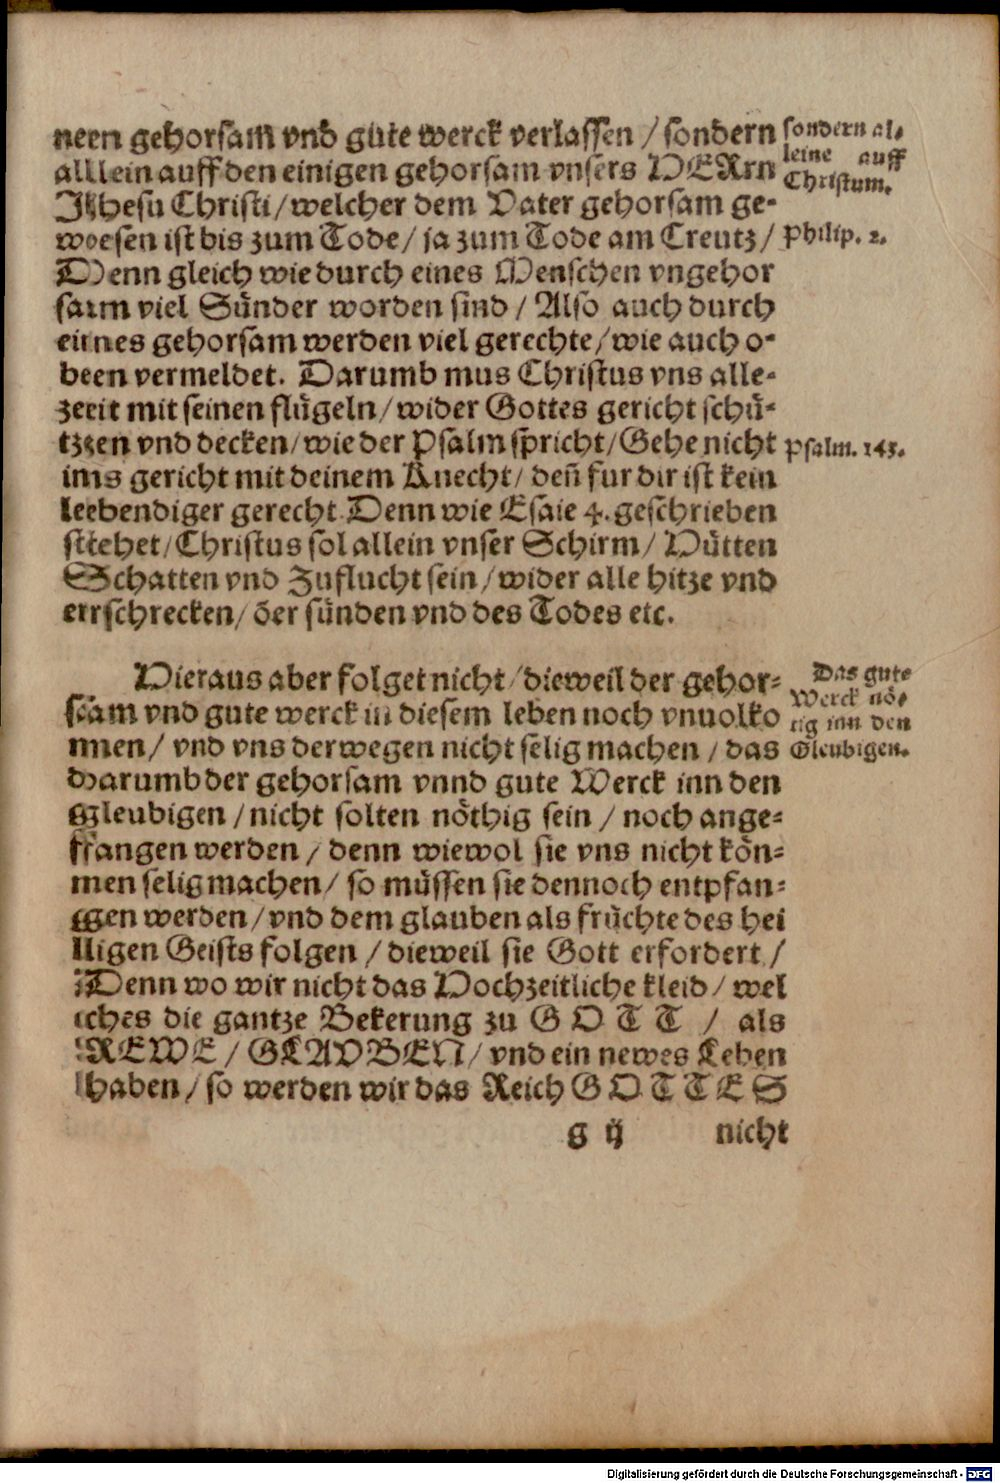 nern gehorsam vnd gute werck verlassen / sondern
alllein auff den einigen gehorsam vnsers HERrn
Jhhesu Christi / welcher dem Vater gehorsam ge-
woesen ist bis zum Tode / ja zum Tode am Creutz /
Denn gleich wie durch eines Menschen vngehor
sarm viel Sünder worden sind / Also auch durch
eines gehorsam werden viel gerechte / wie auch o-
been vermeldet. Darumb mus Christus vns alle-
zeeit mit seinen flügeln / wider Gottes gericht schü-
tzzen vnd decken / wie der Psalm spricht / Gehe nicht
inns gericht mit deinem Knecht / deñ fur dir ist kein
leebendiger gerecht. Denn wie Esaie 4. geschrieben
sttehet / Christus sol allein vnser Schirm / Hütten
Schatten vnd Zuflucht sein / wider alle hitze vnd
errschrecken / der sünden vnd des Todes etc.
sondern al-
leine auff
Christum.
Philip. 2.
Psalm. 143.
Hieraus aber folget nicht / dieweil der gehor-
saam vnd gute werck in diesem leben noch vnuolko
mnen / vnd vns derwegen nicht selig machen / das
darumb der gehorsam vnnd gute Werck inn den
ggleubigen / nicht solten nöthig sein / noch ange-
ffangen werden / denn wiewol sie vns nicht kön-
nen selig machen / so müssen sie dennoch entpfan-
ggen werden / vnd dem glauben als früchte des hei
lligen Geists folgen / dieweil sie Gott erfordert /
Denn wo wir nicht das Hochzeitliche kleid / wel
ches die gantze Bekerung zu GOTT / als
REWE / GLAVBEN / vnd ein newes Leben
haben / so werden wir das Reich GOTTES
Das gute
Werck nö-
tig inn den
Gleubigen.
g ij nicht
Digitalisierung gefördert durch die Deutsche Forschungsgemeinschaft - DFG